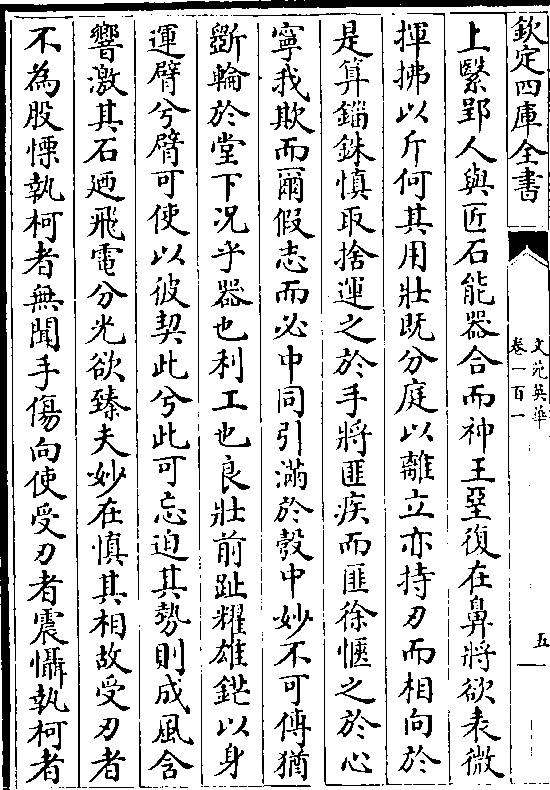 欽定四庫全書
文苑英華
卷一百一
五
上緊郢人與匠石能器合而神王堊復在鼻將欲表微
揮拂以斤何其用壯既分庭以離立亦持刃而相向於
是算錙銖慎取捨運之於手將匪疾而匪徐愜之於心
寧我欺而爾假志而必中同引滿於彀中妙不可傳猶
斲輪於堂下况乎器也利工也良壯前趾耀雄鋩以身
運臂兮臂可使以彼契此兮此可忘迫其勢則成風含
響激其石廼飛電分光欲臻夫妙在慎其相故受刃者
不為股慄執柯者無聞手傷向使受刃者震懾執柯者